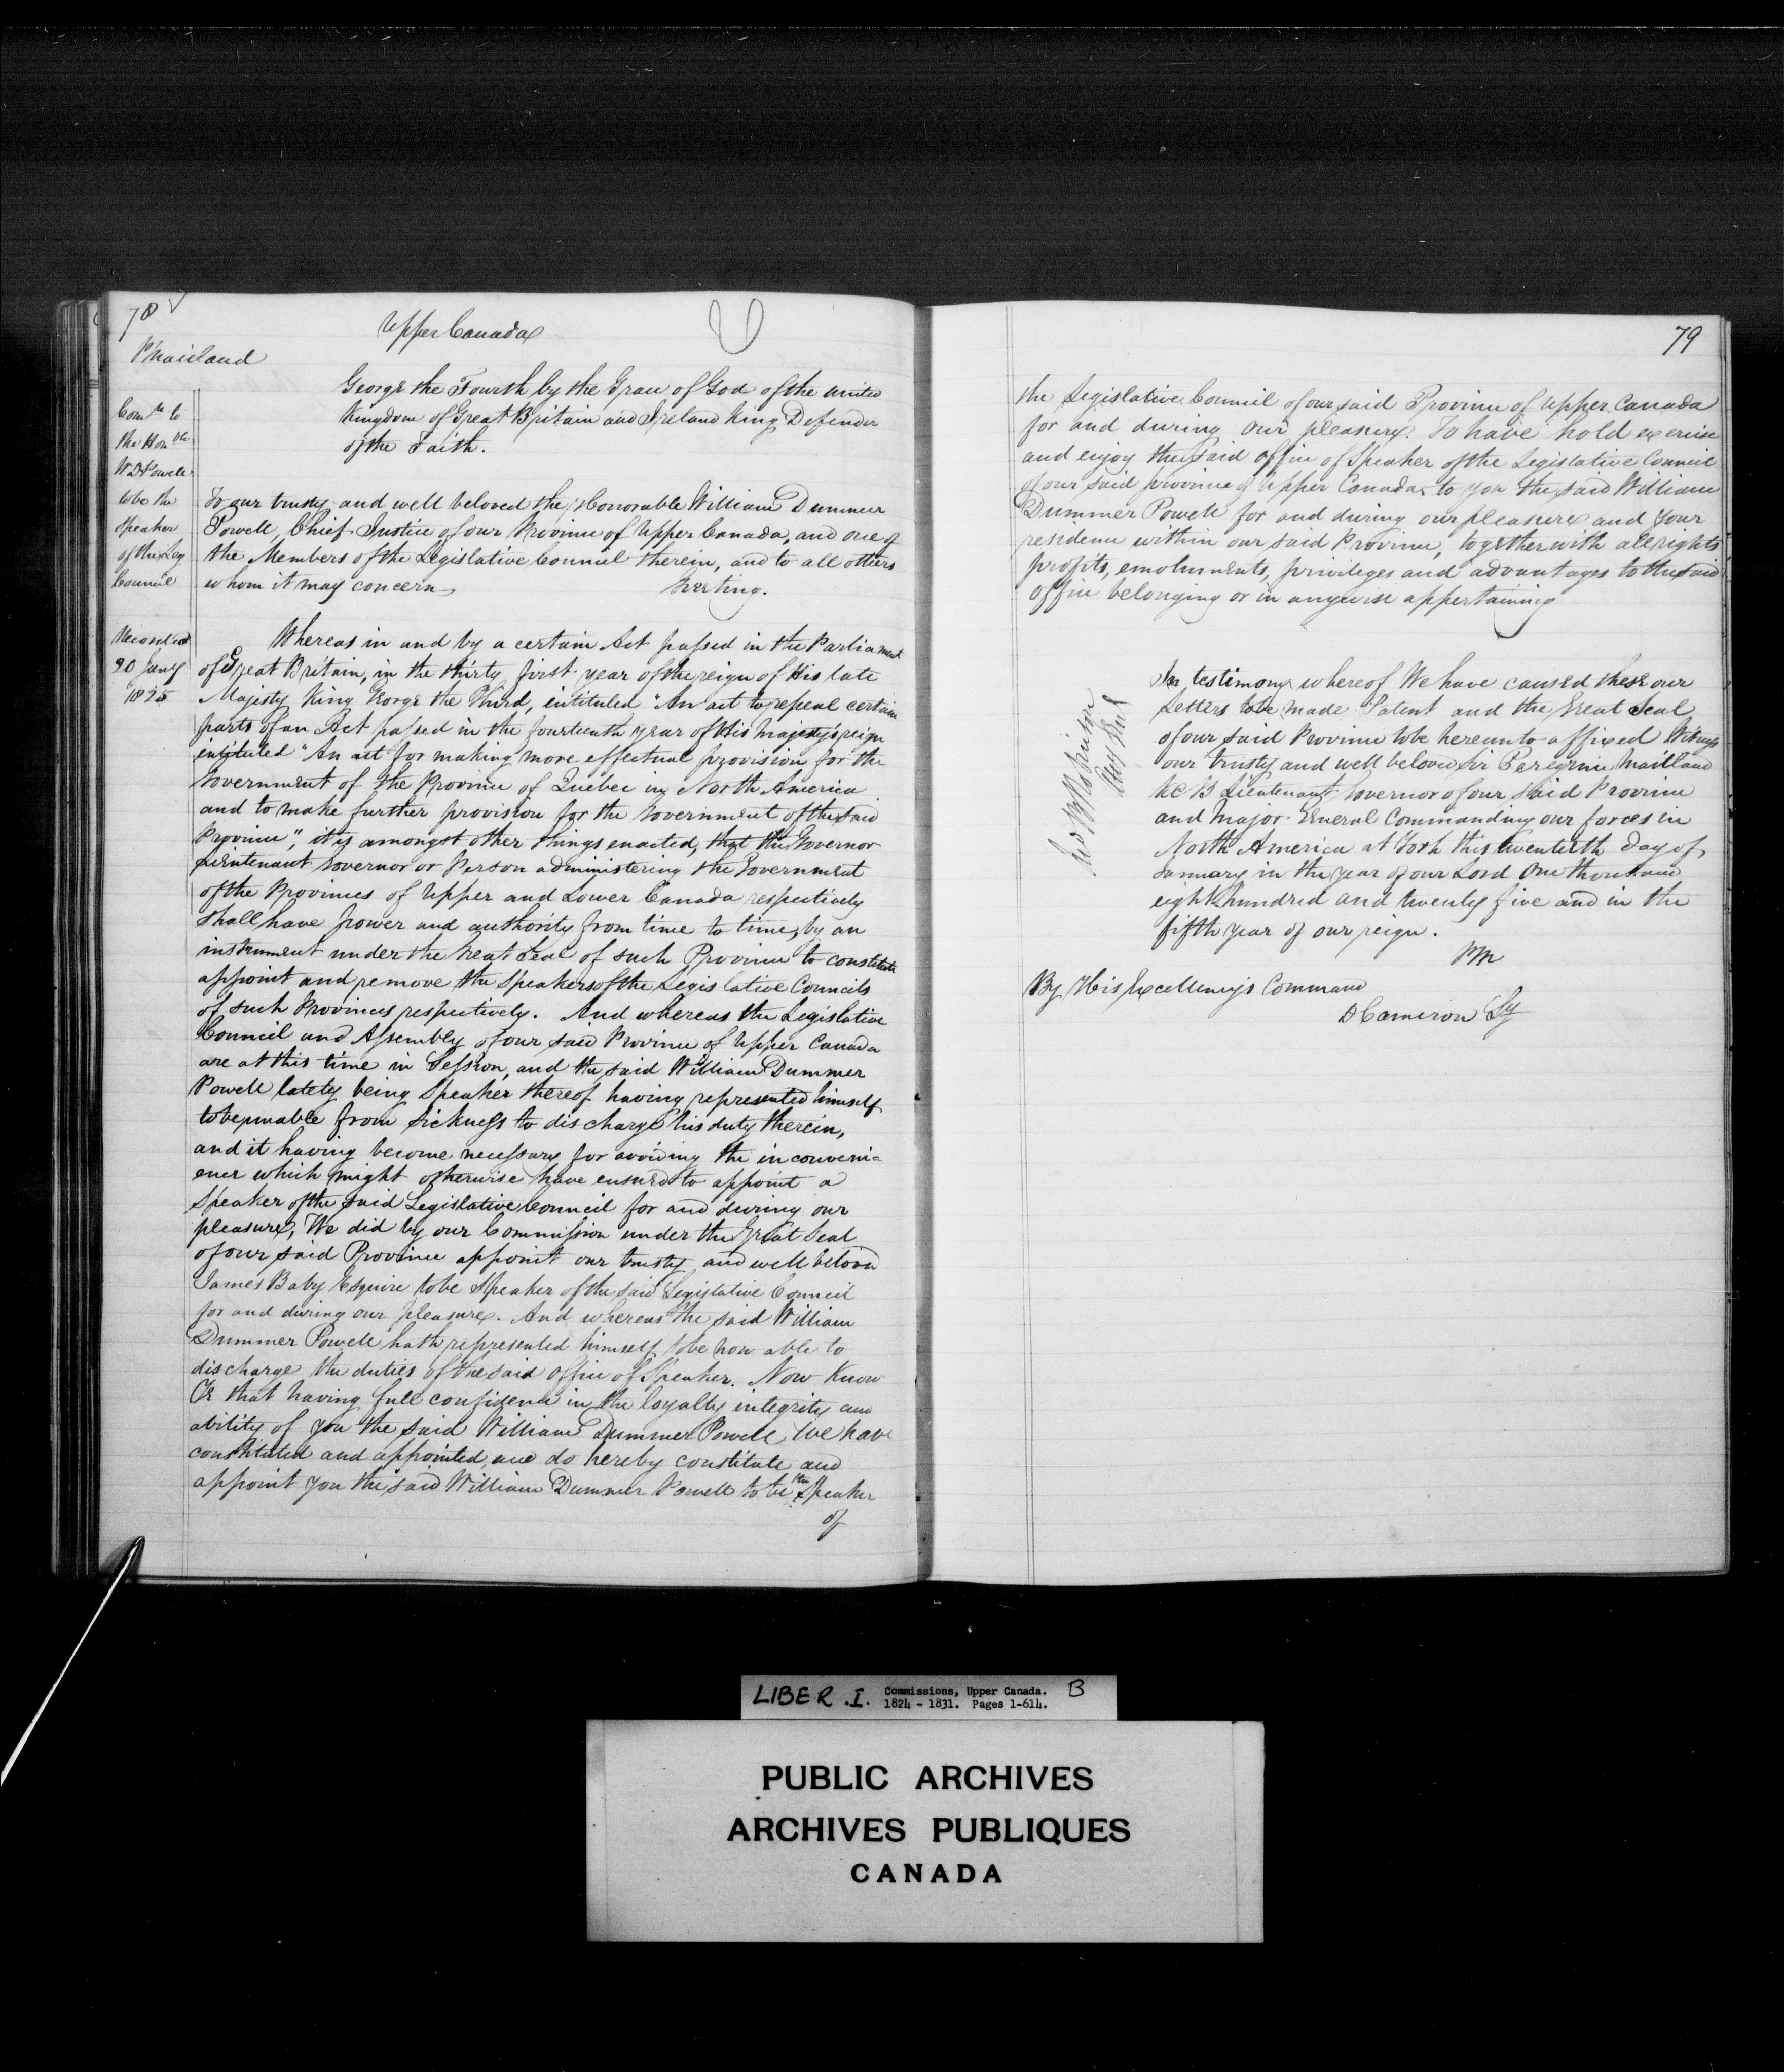 78
Upper Canada
P Maitland
George the Fourth by the Grace of God of the United
Kingdom of Great Britain and Ireland King Defender
of the Faith.
Comn to
the Honble
W D Powell
to be the
Speaker
of the Leg
Council
To our trusty and well beloved the Honorable William Dummer
Powell, Chief Justice of our Province of Upper Canada, and one of
the Members of the Legislative Council therein, and to all others
whom it may concern Greeting.
Recorded
20 Jany
1825
Whereas in and by a certain Act passed in the Parliament
of Great Britain, in the thirty first year of the reign of His late
Majesty King George the Third, intituled "An act to repeal certain
parts of an Act passed in the fourteenth year of His Majesty's reign
intituled "An act for making more effectual provision for the
Government of the Province of Quebec in North America
and to make further provision for the Government of the said
Province", it is amongst other things enacted, that the Governor
Lieutenant Governor or Person administering the Government
of the Provinces of Upper and Lower Canada respectively
shall have power and authority from time to time, by an
instrument under the Great Seal of such Province to constitute
appoint and remove the Speakers of the Legislative Councils
of such Provinces respectively. And whereas the Legislative
Council and Assembly of our said Province of Upper Canada
are at this time in Session, and the said William Dummer
Powell lately being Speaker thereof having represented himself
to be unable from sickness to discharge his duty therein,
and it having become necessary for avoiding the inconveni=
ence which might otherwise have ensued to appoint a
Speaker of the said Legislative Council for and during our
pleasure, We did by our Commission under the Great Seal
of our said Province appoint our trusty and well beloved
James Baby Esquire to be Speaker of the said Legislative Council
for and during our pleasure. And whereas the said William
Dummer Powell hath represented himself to be now able to
discharge the duties of the said office of Speaker. Now Know
Ye that having full confidence in the loyalty integrity and
ability of you the said William Dummer Powell We have
constituted and appointed, and do hereby constitute and
appoint you the said William Dummer Powell to be the Speaker
of
79
the Legislative Council of our said Province of Upper Canada
for and during our pleasure. To have hold exercise
and enjoy the said office of Speaker of the Legislative Council
of our said province of Upper Canada, to you the said William
Dummer Powell for and during our pleasure and your
residence within our said Province, together with all rights
profits, emoluments, privileges and advantages to the said
office belonging or in anywise appertaining
In testimony whereof We have caused these our
Letters to be made Patent and the Great Seal
of our said Province to be hereunto affixed Witness
our trusty and well beloved Sir Peregrine Maitland
K C B Lieutenant Governor of our said Province
and Major General Commanding our forces in
North America at York this twentieth day of
January in the year of our Lord One thousand
eight hundred and twenty five and in the
fifth year of our reign.
PM
By His Excellency's Command
D Cameron Sy
LIBER .I. Commissions, Upper Canada. B
1824 - 1831. Pages 1-614.
PUBLIC ARCHIVES
ARCHIVES PUBLIQUES
CANADA